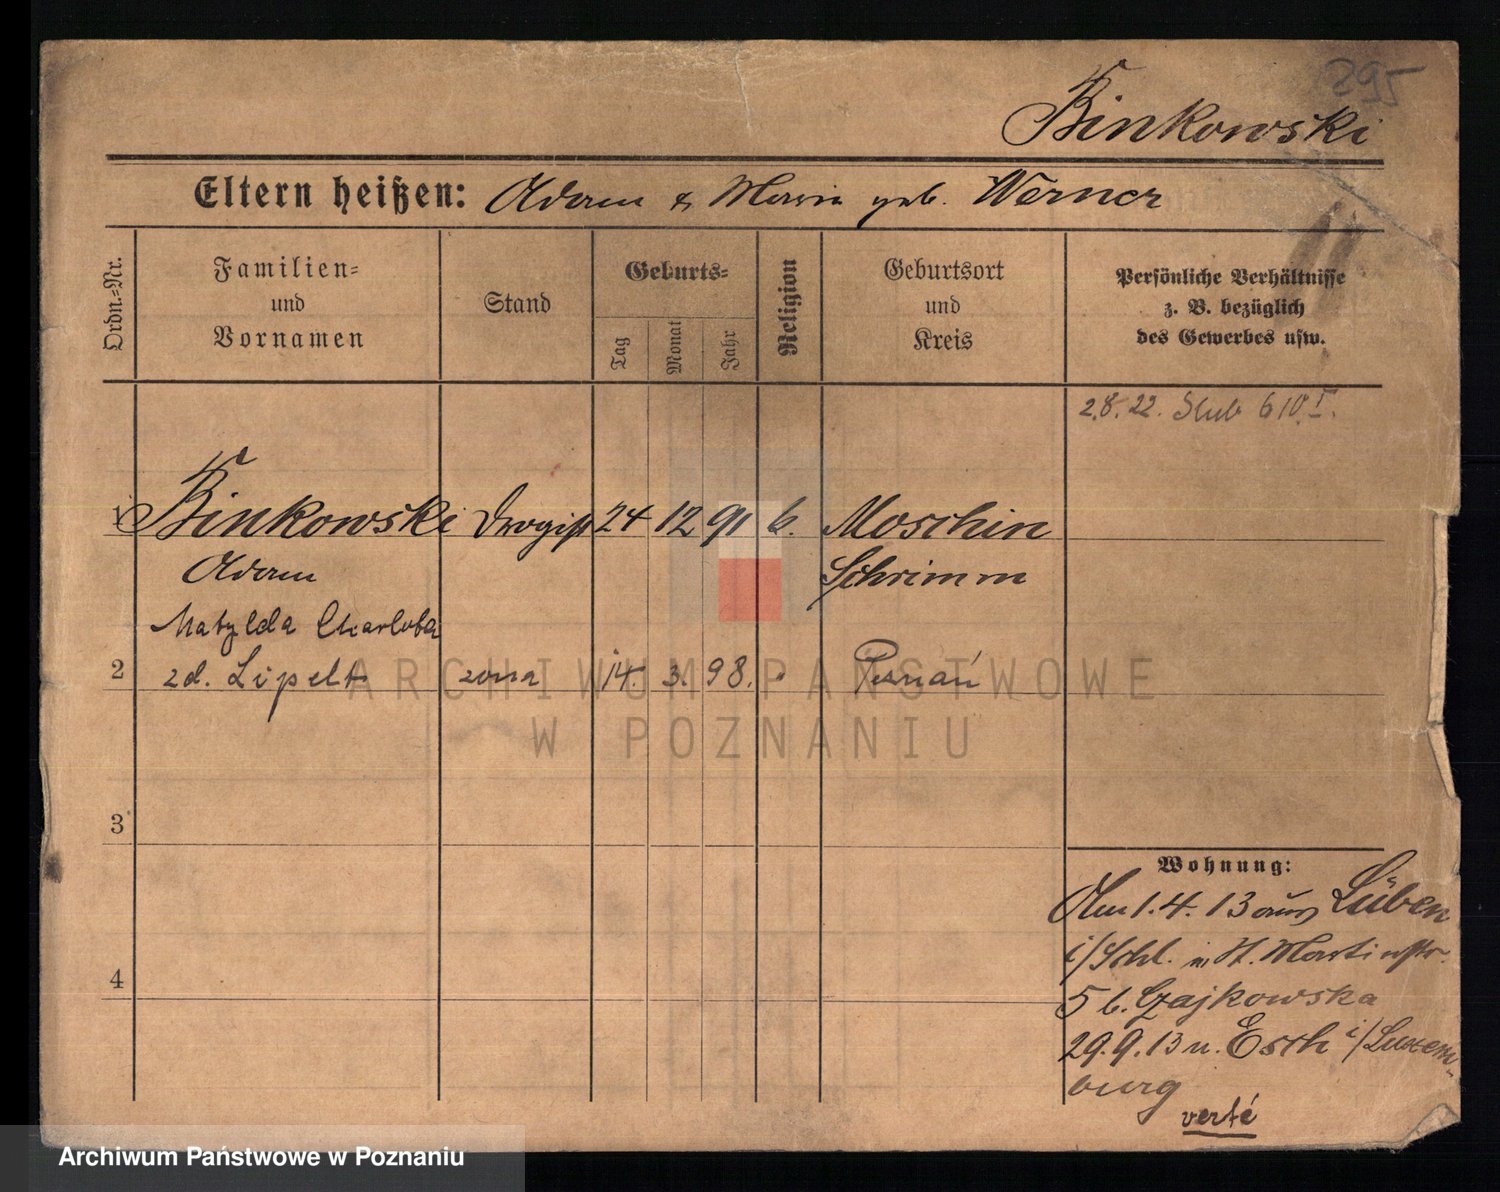 295
Binkowski
Eltern heißen: Adam & Maria geb. Werner
Ordn.=Nr.
Familien=
und
Vornamen
Stand
Geburts=
Tag
Monat
Jahr
Religion
Geburtsort
und
Kreis
Persönliche Verhältnisse
z. B. bezüglich
des Gewerbes usw.
2.8.22. Slub 610 I.
1 Binkowski Drogist 24 12 91 k. Moschin
Adam Schrimm
Matylda Charlota
2 zd. Lipelt zona 14. 3. 98. " Poznań
3
4
Wohnung:
Am 1.4.13 aus Lüben
i/Schl. n. St. Martinstr.
5 b. Czajkowska
29.9.13 n. Esch i/Luxem-
burg
verté
ARCHIWUM PAŃSTWOWE
W POZNANIU
Archiwum Państwowe w Poznaniu